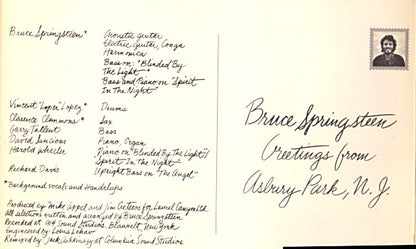 Bruce Springsteen* Acoustic Guitar
Electric Guitar, Conga
Harmonica
Bass on "Blinded By
The Light"
Bass and Piano on "Spirit
In The Night"
Vincent "Loper" Lopez* Drums
Clarence Clemmons* Sax
Garry Tallent Bass
David Sancious Piano, Organ
Harold Wheeler Piano on "Blinded By The Light"/
Spirit In The Night
Richard Davis Upright Bass on "The Angel"
*Background vocals and Handclaps
Produced by Mike Appel and Jim Cretecos for Laurel Canyon Ltd.
All selections written and arranged by Bruce Springsteen
Recorded at 914 Sound Studios, Blauvelt, New York
Engineered by Louis Lahav
Remixed by Jack Ashkinazy at Columbia Sound Studios
Bruce Springsteen
Greetings from
Asbury Park, N. J.